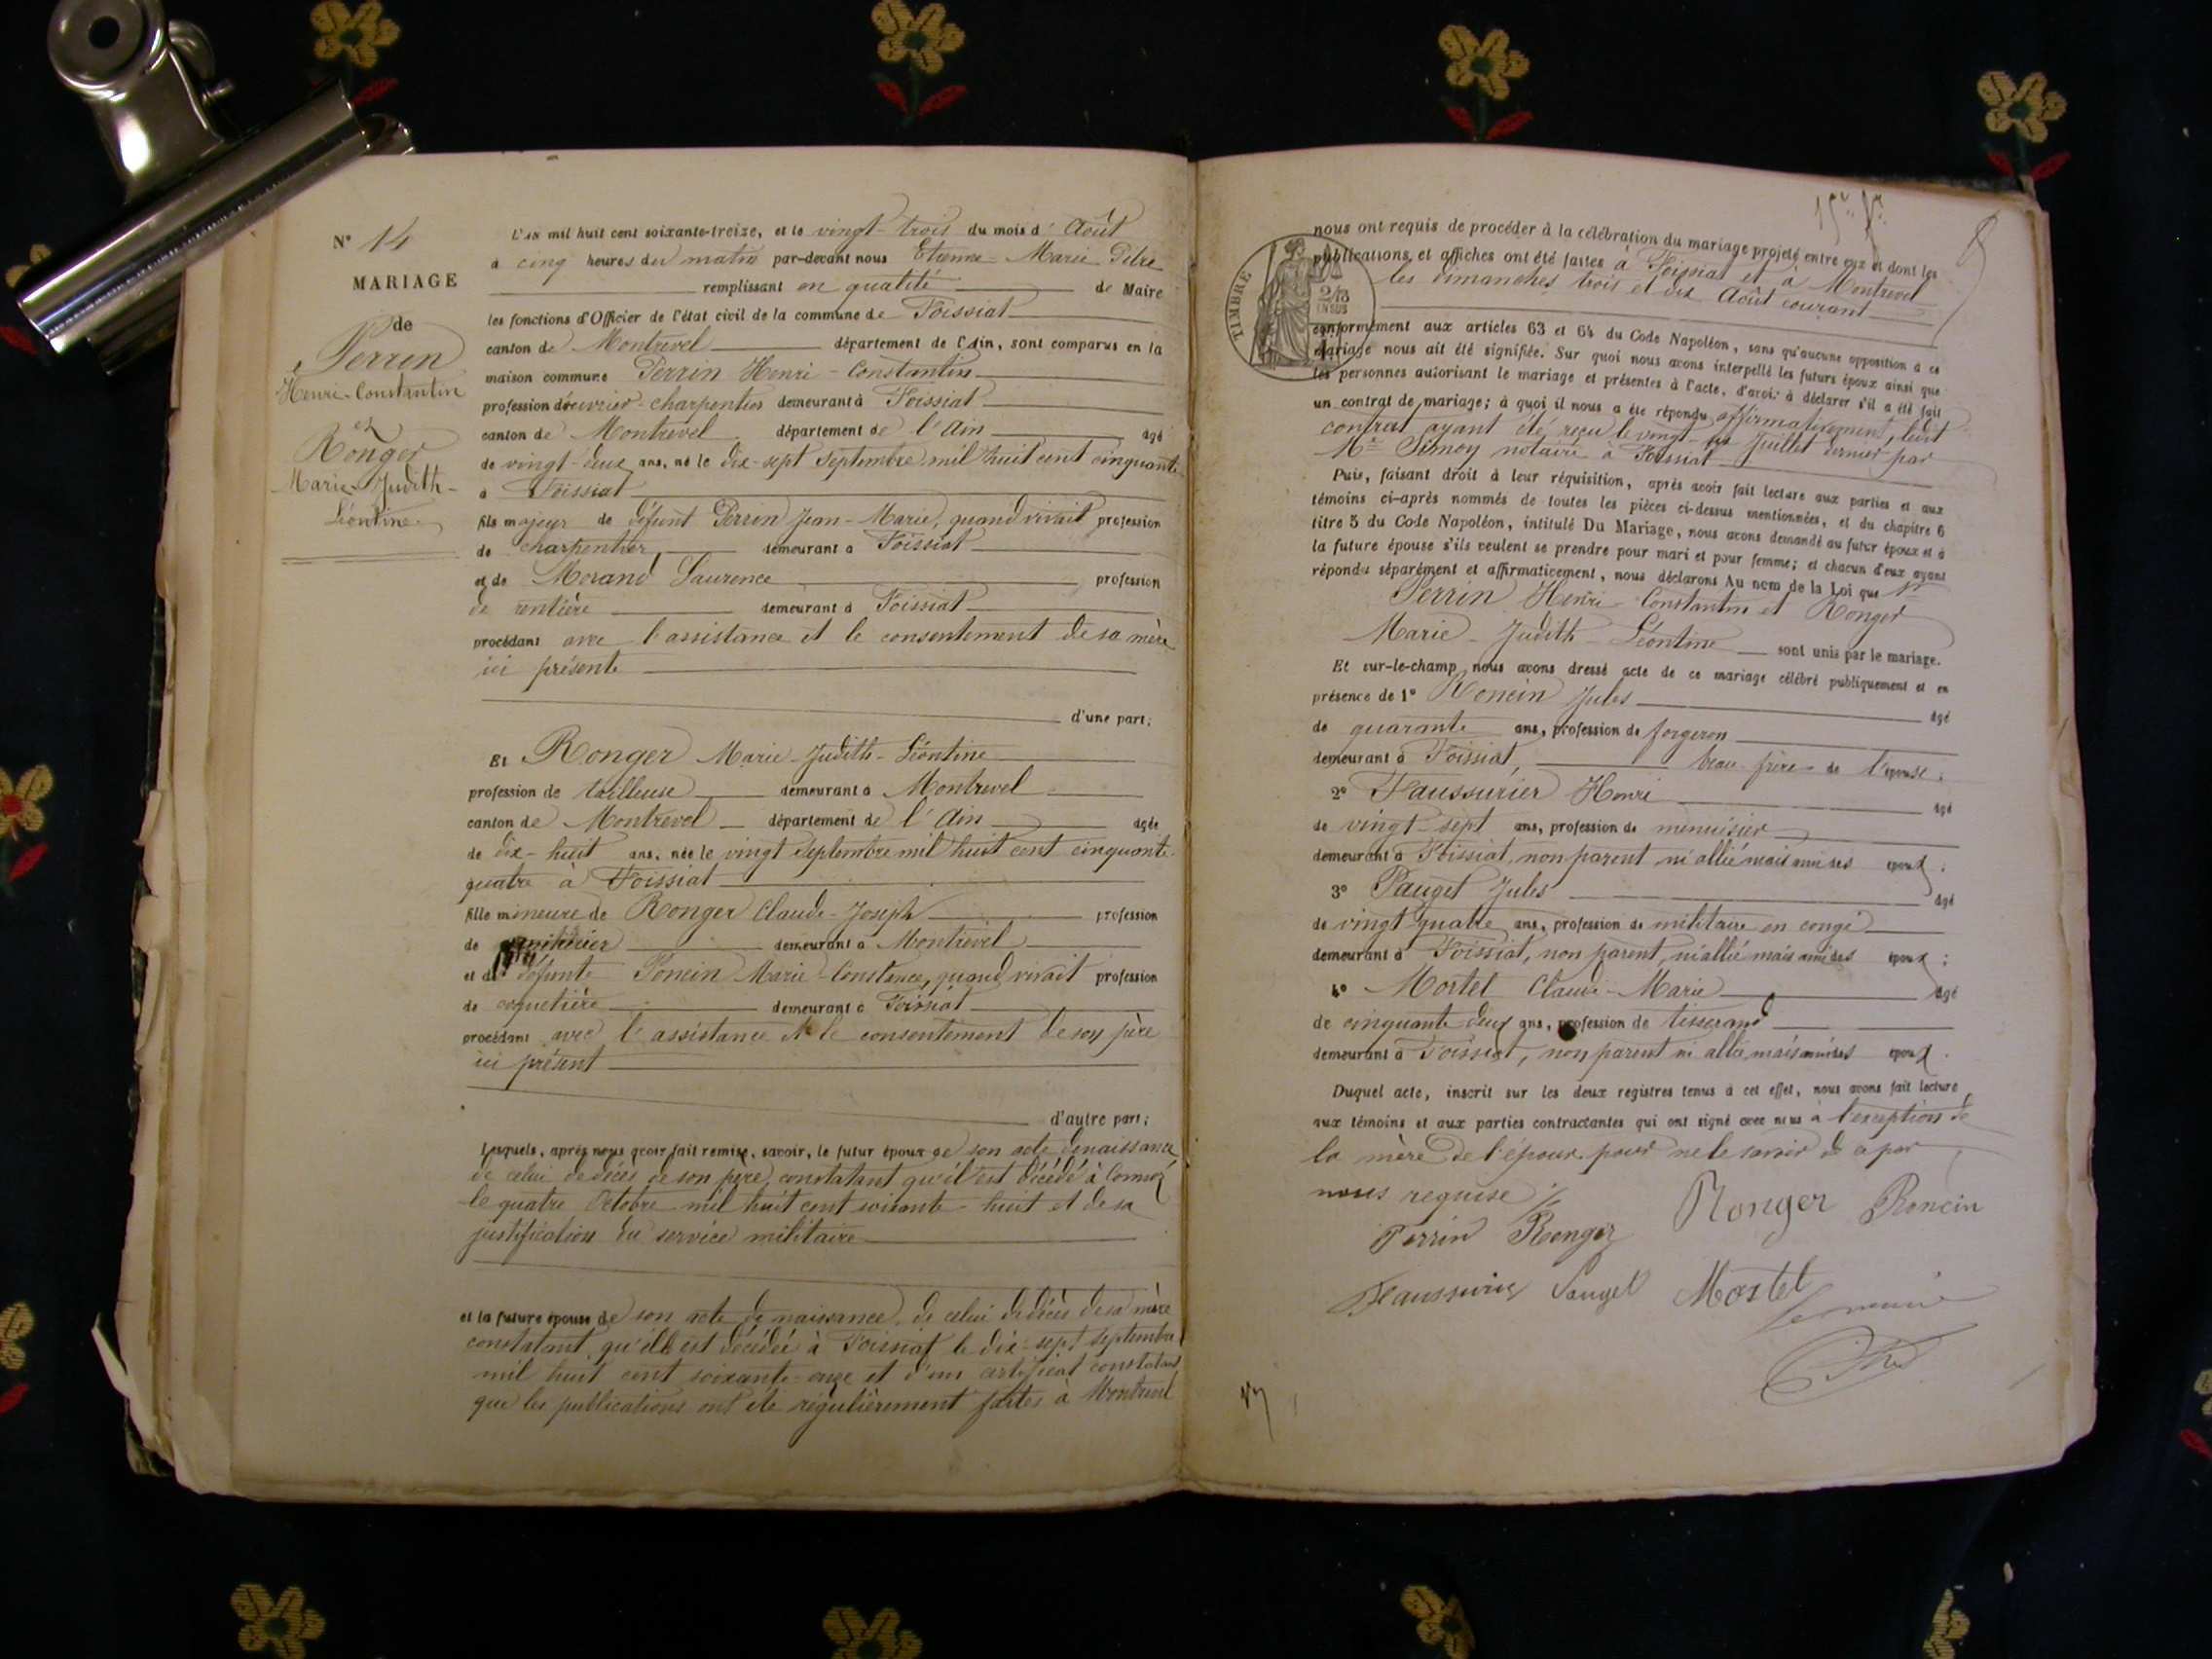 N° 14
MARIAGE
de
Perrin
Henri-Constantin
et
Ronger
Marie-Judith-
Léontine
L'an mil huit cent soixante-treize, et le vingt-trois du mois d'Août
à cinq heures du matin par-devant nous Etienne-Marie
remplissant en qualité de Maire
les fonctions d'Officier de l'état civil de la commune de Foissiat
canton de Montrevel département de l'Ain, sont comparus en la
maison commune Perrin Henri-Constantin
profession d'ouvrier-charpentier demeurant à Foissiat
canton de Montrevel département de l'Ain âgé
de vingt-deux ans, né le dix-sept Septembre mil huit cent cinquante
à Foissiat
fils majeur de défunt Perrin Jean-Marie, quand vivait profession
de charpentier demeurant à Foissiat
et de Morand Laurence profession
de rentière demeurant à Foissiat
procédant avec l'assistance et le consentement de sa mère
ici présente
d'une part;
Et Ronger Marie-Judith-Léontine
profession de tailleuse demeurant à Montrevel
canton de Montrevel département de l'Ain âgée
de dix-huit ans, née le vingt Septembre mil huit cent cinquante-
quatre à Foissiat
fille mineure de Ronger Claude-Joseph profession
de demeurant à Montrevel
et de défunte Poncin Marie-Constance, quand vivait profession
de coquetière demeurant à Foissiat
procédant avec l'assistance et le consentement de son père
ici présent
d'autre part;
Lesquels, après nous avoir fait remise, savoir, le futur époux de son acte de naissance
de celui de décès de son père, constatant qu'il est décédé à
le quatre Octobre mil huit cent soixante-huit et de sa
justification du service militaire
et la future épouse de son acte de naissance, de celui de décès de sa mère
constatant qu'elle est décédée à Foissiat le dix-sept Septembre
mil huit cent soixante-onze et d'un certificat constatant
que les publications ont été régulièrement faites à Montrevel
TIMBRE
nous ont requis de procéder à la célébration du mariage projeté entre eux et dont les
publications et affiches ont été faites à Foissiat et à Montrevel
les dimanches trois et dix Août courant
conformément aux articles 63 et 64 du Code Napoléon, sans qu'aucune opposition à ce
mariage nous ait été signifiée. Sur quoi nous avons interpellé les futurs époux ainsi que
les personnes autorisant le mariage et présentes à l'acte, d'avoir à déclarer s'il a été fait
un contrat de mariage; à quoi il nous a été répondu affirmativement, ledit
contrat ayant été reçu le vingt Juillet dernier par
Me notaire à Foissiat
Puis, faisant droit à leur réquisition, après avoir fait lecture aux parties et aux
témoins ci-après nommés de toutes les pièces ci-dessus mentionnées, et du chapitre 6
titre 5 du Code Napoléon, intitulé Du Mariage, nous avons demandé au futur époux et à
la future épouse s'ils veulent se prendre pour mari et pour femme; et chacun d'eux ayant
répondu séparément et affirmativement, nous déclarons Au nom de la Loi que
Perrin Henri-Constantin et Ronger
Marie-Judith-Léontine sont unis par le mariage.
Et sur-le-champ nous avons dressé acte de ce mariage célébré publiquement et en
présence de 1° Roncin Jules âgé
de quarante ans, profession de forgeron
demeurant à Foissiat, beau-frère de l'épouse;
2° Faussurier Henri âgé
de vingt-sept ans, profession de menuisier
demeurant à Foissiat, non parent ni allié mais ami des époux;
3° Pauget Jules âgé
de vingt-quatre ans, profession de militaire en congé
demeurant à Foissiat, non parent, ni allié mais ami des époux;
4° Mortel Claude-Marie âgé
de cinquante-deux ans, profession de tisserand
demeurant à Foissiat, non parent ni allié mais ami des époux.
Duquel acte, inscrit sur les deux registres tenus à cet effet, nous avons fait lecture
aux témoins et aux parties contractantes qui ont signé avec nous à l'exception de
la mère de l'époux pour ne le savoir de ce par
nous requise
Perrin Ronger Ronger Roncin
Faussurier Pauget Mortel
le maire